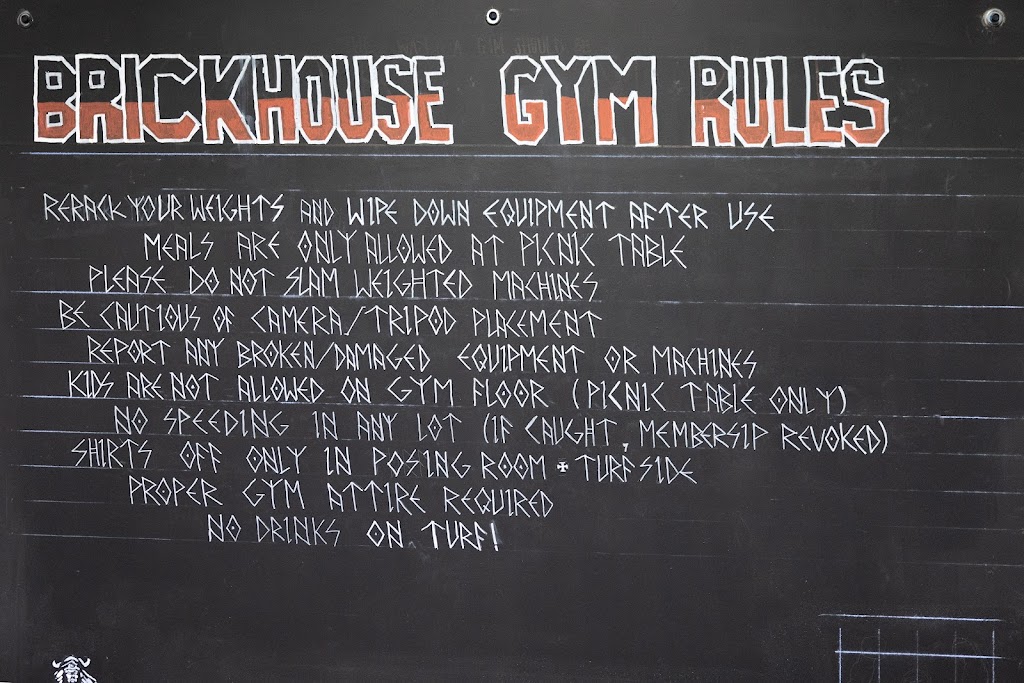 BRICKHOUSE GYM RULES
RERACK YOUR WEIGHTS AND WIPE DOWN EQUIPMENT AFTER USE
MEALS ARE ONLY ALLOWED AT PICNIC TABLE
PLEASE DO NOT SLAM WEIGHTED MACHINES
BE CAUTIOUS OF CAMERA/TRIPOD PLACEMENT
REPORT ANY BROKEN/DAMAGED EQUIPMENT OR MACHINES
KIDS ARE NOT ALLOWED ON GYM FLOOR (PICNIC TABLE ONLY)
NO SPEEDING IN ANY LOT (IF CAUGHT, MEMBERSIP REVOKED)
SHIRTS OFF ONLY IN POSING ROOM + TURFSIDE
PROPER GYM ATTIRE REQUIRED
NO DRINKS ON TURF!